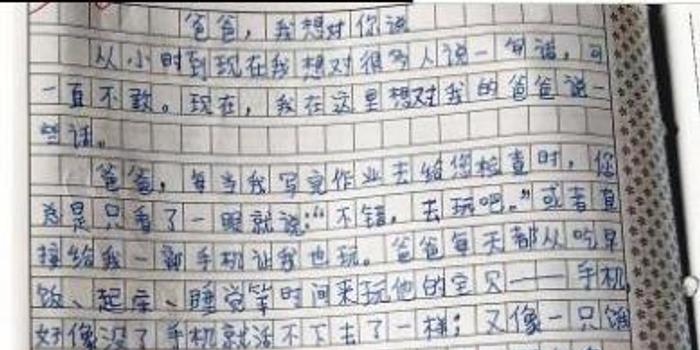 爸爸，我想对你说
从小时到现在我想对很多人说一句话，可
一直不敢。现在，我在这里想对我的爸爸说一
些话。
爸爸，每当我写完作业去给您检查时，您
总是只看了一眼就说：“不错，去玩吧。”或者直
接给我一部手机让我也玩。爸爸每天都从吃早
饭、起床、睡觉等时间来玩他的宝贝——手机，
好像没了手机就活不下去了一样；又像一只饿